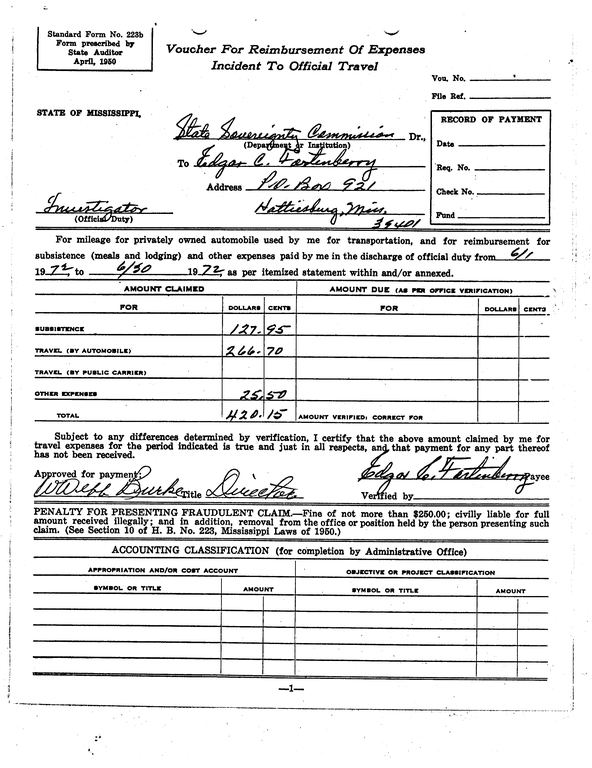 Standard Form No. 223b
Form prescribed by
State Auditor
April, 1950
Voucher For Reimbursement Of Expenses
Incident To Official Travel
Vou. No.
File Ref.
STATE OF MISSISSIPPI,
RECORD OF PAYMENT
State Sovereignty Commission Dr.,
(Department or Institution)
Date
To Edgar C. Fortenberry
Req. No.
Address P.O. Box 921
Check No.
Investigator Hattiesburg, Miss.
(Official Duty) 39401
Fund
For mileage for privately owned automobile used by me for transportation, and for reimbursement for
subsistence (meals and lodging) and other expenses paid by me in the discharge of official duty from 6/1
1972, to 6/30 1972, as per itemized statement within and/or annexed.
AMOUNT CLAIMED AMOUNT DUE (AS PER OFFICE VERIFICATION)
FOR DOLLARS CENTS FOR DOLLARS CENTS
SUBSISTENCE 127.95
TRAVEL (BY AUTOMOBILE) 266.70
TRAVEL (BY PUBLIC CARRIER)
OTHER EXPENSES 25.50
TOTAL 420.15 AMOUNT VERIFIED: CORRECT FOR
Subject to any differences determined by verification, I certify that the above amount claimed by me for
travel expenses for the period indicated is true and just in all respects, and that payment for any part thereof
has not been received.
Approved for payment: Edgar C. Fortenberry Payee
W Webb Burke Title Director Verified by
PENALTY FOR PRESENTING FRAUDULENT CLAIM.—Fine of not more than $250.00; civilly liable for full
amount received illegally; and in addition, removal from the office or position held by the person presenting such
claim. (See Section 10 of H. B. No. 223, Mississippi Laws of 1950.)
ACCOUNTING CLASSIFICATION (for completion by Administrative Office)
APPROPRIATION AND/OR COST ACCOUNT OBJECTIVE OR PROJECT CLASSIFICATION
SYMBOL OR TITLE AMOUNT SYMBOL OR TITLE AMOUNT
—1—